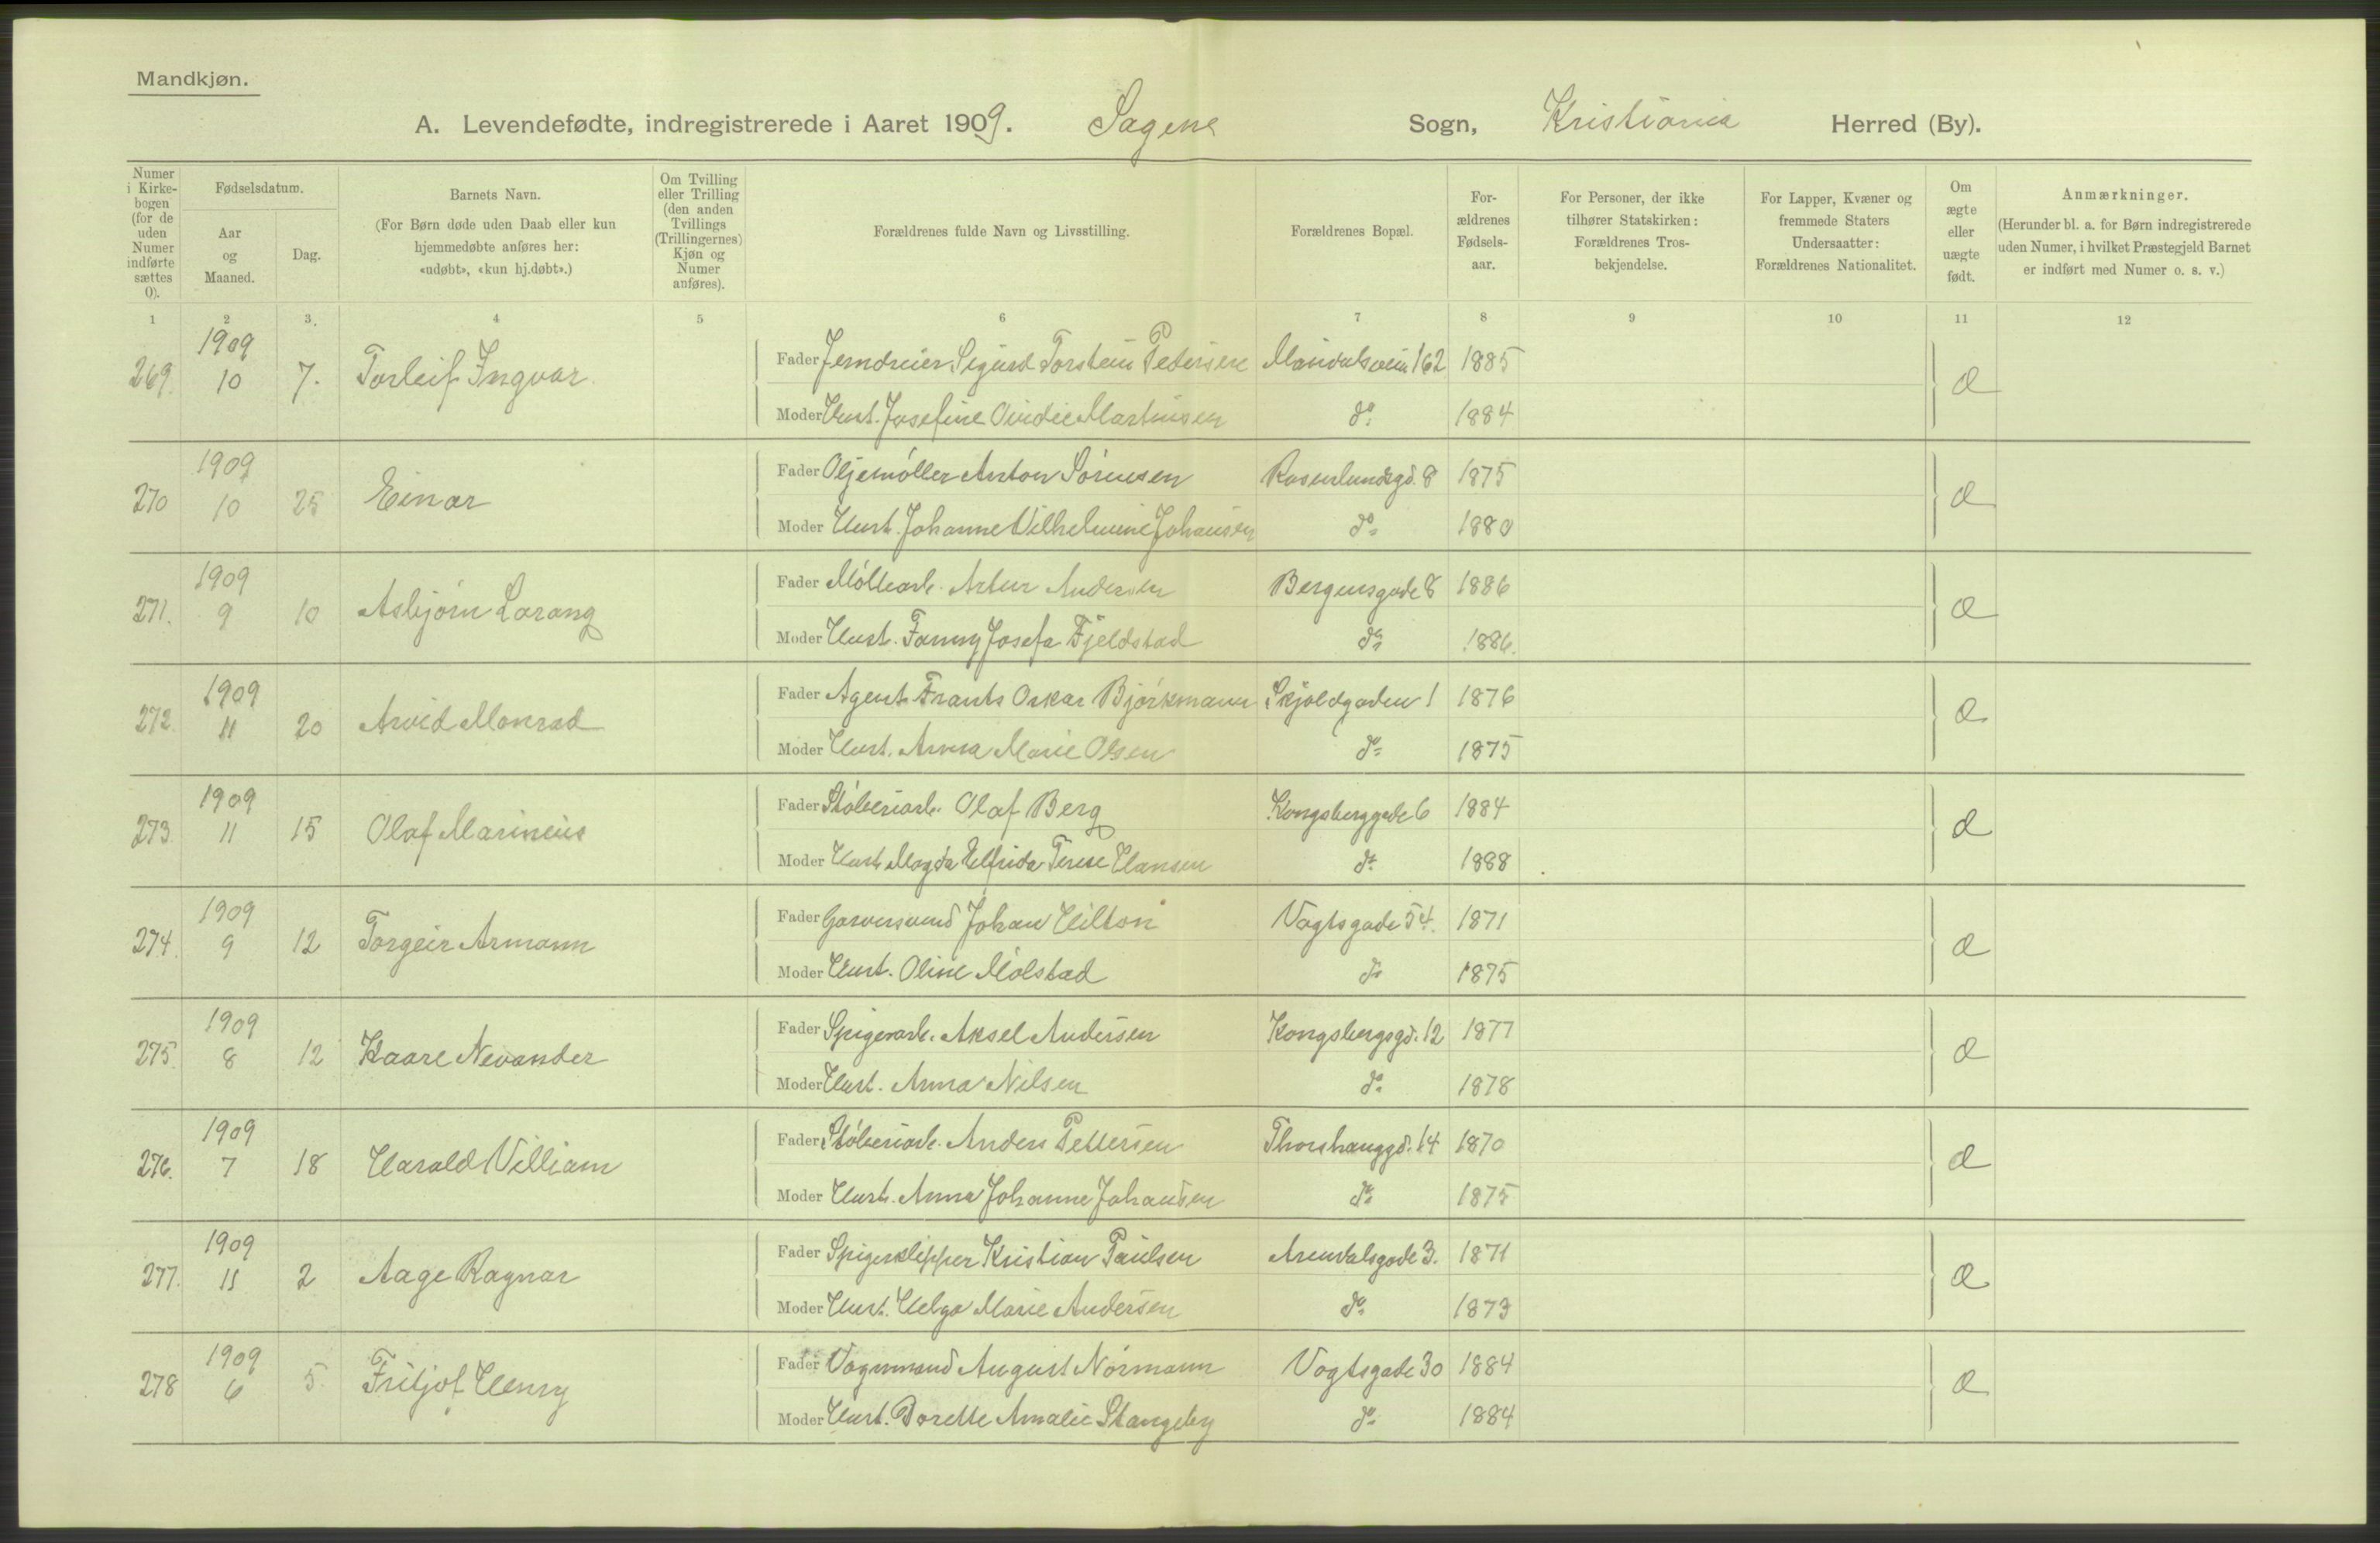 Mandkjøn.
A. Levendefødte, indregistrerede i Aaret 1909. Sagene Sogn, Kristiania Herred (By).
Numer i Kirkebogen (for de uden Numer indførte sættes 0).
Fødselsdatum.
Aar og Maaned.
Dag.
Barnets Navn.
(For Børn døde uden Daab eller kun hjemmedøbte anføres her: «udøbt», «kun hj.døbt».)
Om Tvilling eller Trilling (den anden Tvillings (Trillingernes) Kjøn og Numer anføres).
Forældrenes fulde Navn og Livsstilling.
Forældrenes Bopæl.
Forældrenes Fødselsaar.
For Personer, der ikke tilhører Statskirken: Forældrenes Trosbekjendelse.
For Lapper, Kvæner og fremmede Staters Undersaatter: Forældrenes Nationalitet.
Om ægte eller uægte født.
Anmærkninger.
(Herunder bl. a. for Børn indregistrerede uden Numer, i hvilket Præstegjeld Barnet er indført med Numer o. s. v.)
1 2 3. 4 5 6 7 8 9 10 11 12
269. 1909 10 7. Torleif Ingvar
Fader Jerndreier Sigurd Torstein Pedersen 162 1885
Moder Hust. Josefine Martinsen do 1884
Æ
270 1909 10 25 Einar
Fader Oljemøller Anton Sørensen Rosenlundsgd. 8 1875
Moder Hust. Johanne Vilhelmine Johansen do 1880
Æ
271. 1909 9 10 Asbjørn Lorang
Fader Møllearb. Artur Andersen Bergensgade 8 1886
Moder Hust. Fanny Josefa Fjeldstad do 1886.
Æ
272. 1909 11 20 Arvid Monrad
Fader Agent Frants Oskar Bjørkmann Skjoldgaden 1 1876
Moder Hust. Anna Marie Olsen do 1875
Æ
273 1909 11 15 Olaf Marineus
Fader Støberiarb. Olaf Berg Kongsberggade 6 1884
Moder Hust. Magda Elfrida Terese Hansen do 1888
Æ
274. 1909 9 12 Torgeir Armann
Fader Garversvend Johan Hilton Vogtsgade 54. 1871
Moder Hust. Oline Mølstad do 1875
Æ
275. 1909 8 12 Kaare Nevander
Fader Spigerarb. Aksel Andersen Kongsbergsgd. 12 1877
Moder Hust. Anna Nilsen do 1878
Æ
276. 1909 7 18 Harald Villiam
Fader Støberiarb. Anders Pettersen Thorshauggd. 14 1870
Moder Hust. Anna Johanne Johansen do 1875
Æ
277. 1909 11 2 Aage Ragnar
Fader Spigerklipper Kristian Paulsen Arendalsgade 3. 1871
Moder Hust. Helga Marie Andersen do 1873
Æ
278 1909 6 5. Fritjof Henry
Fader Vognmand August Normann Vogtsgade 30 1884
Moder Hust. Dorette Amalie Stangeby do 1884
Æ